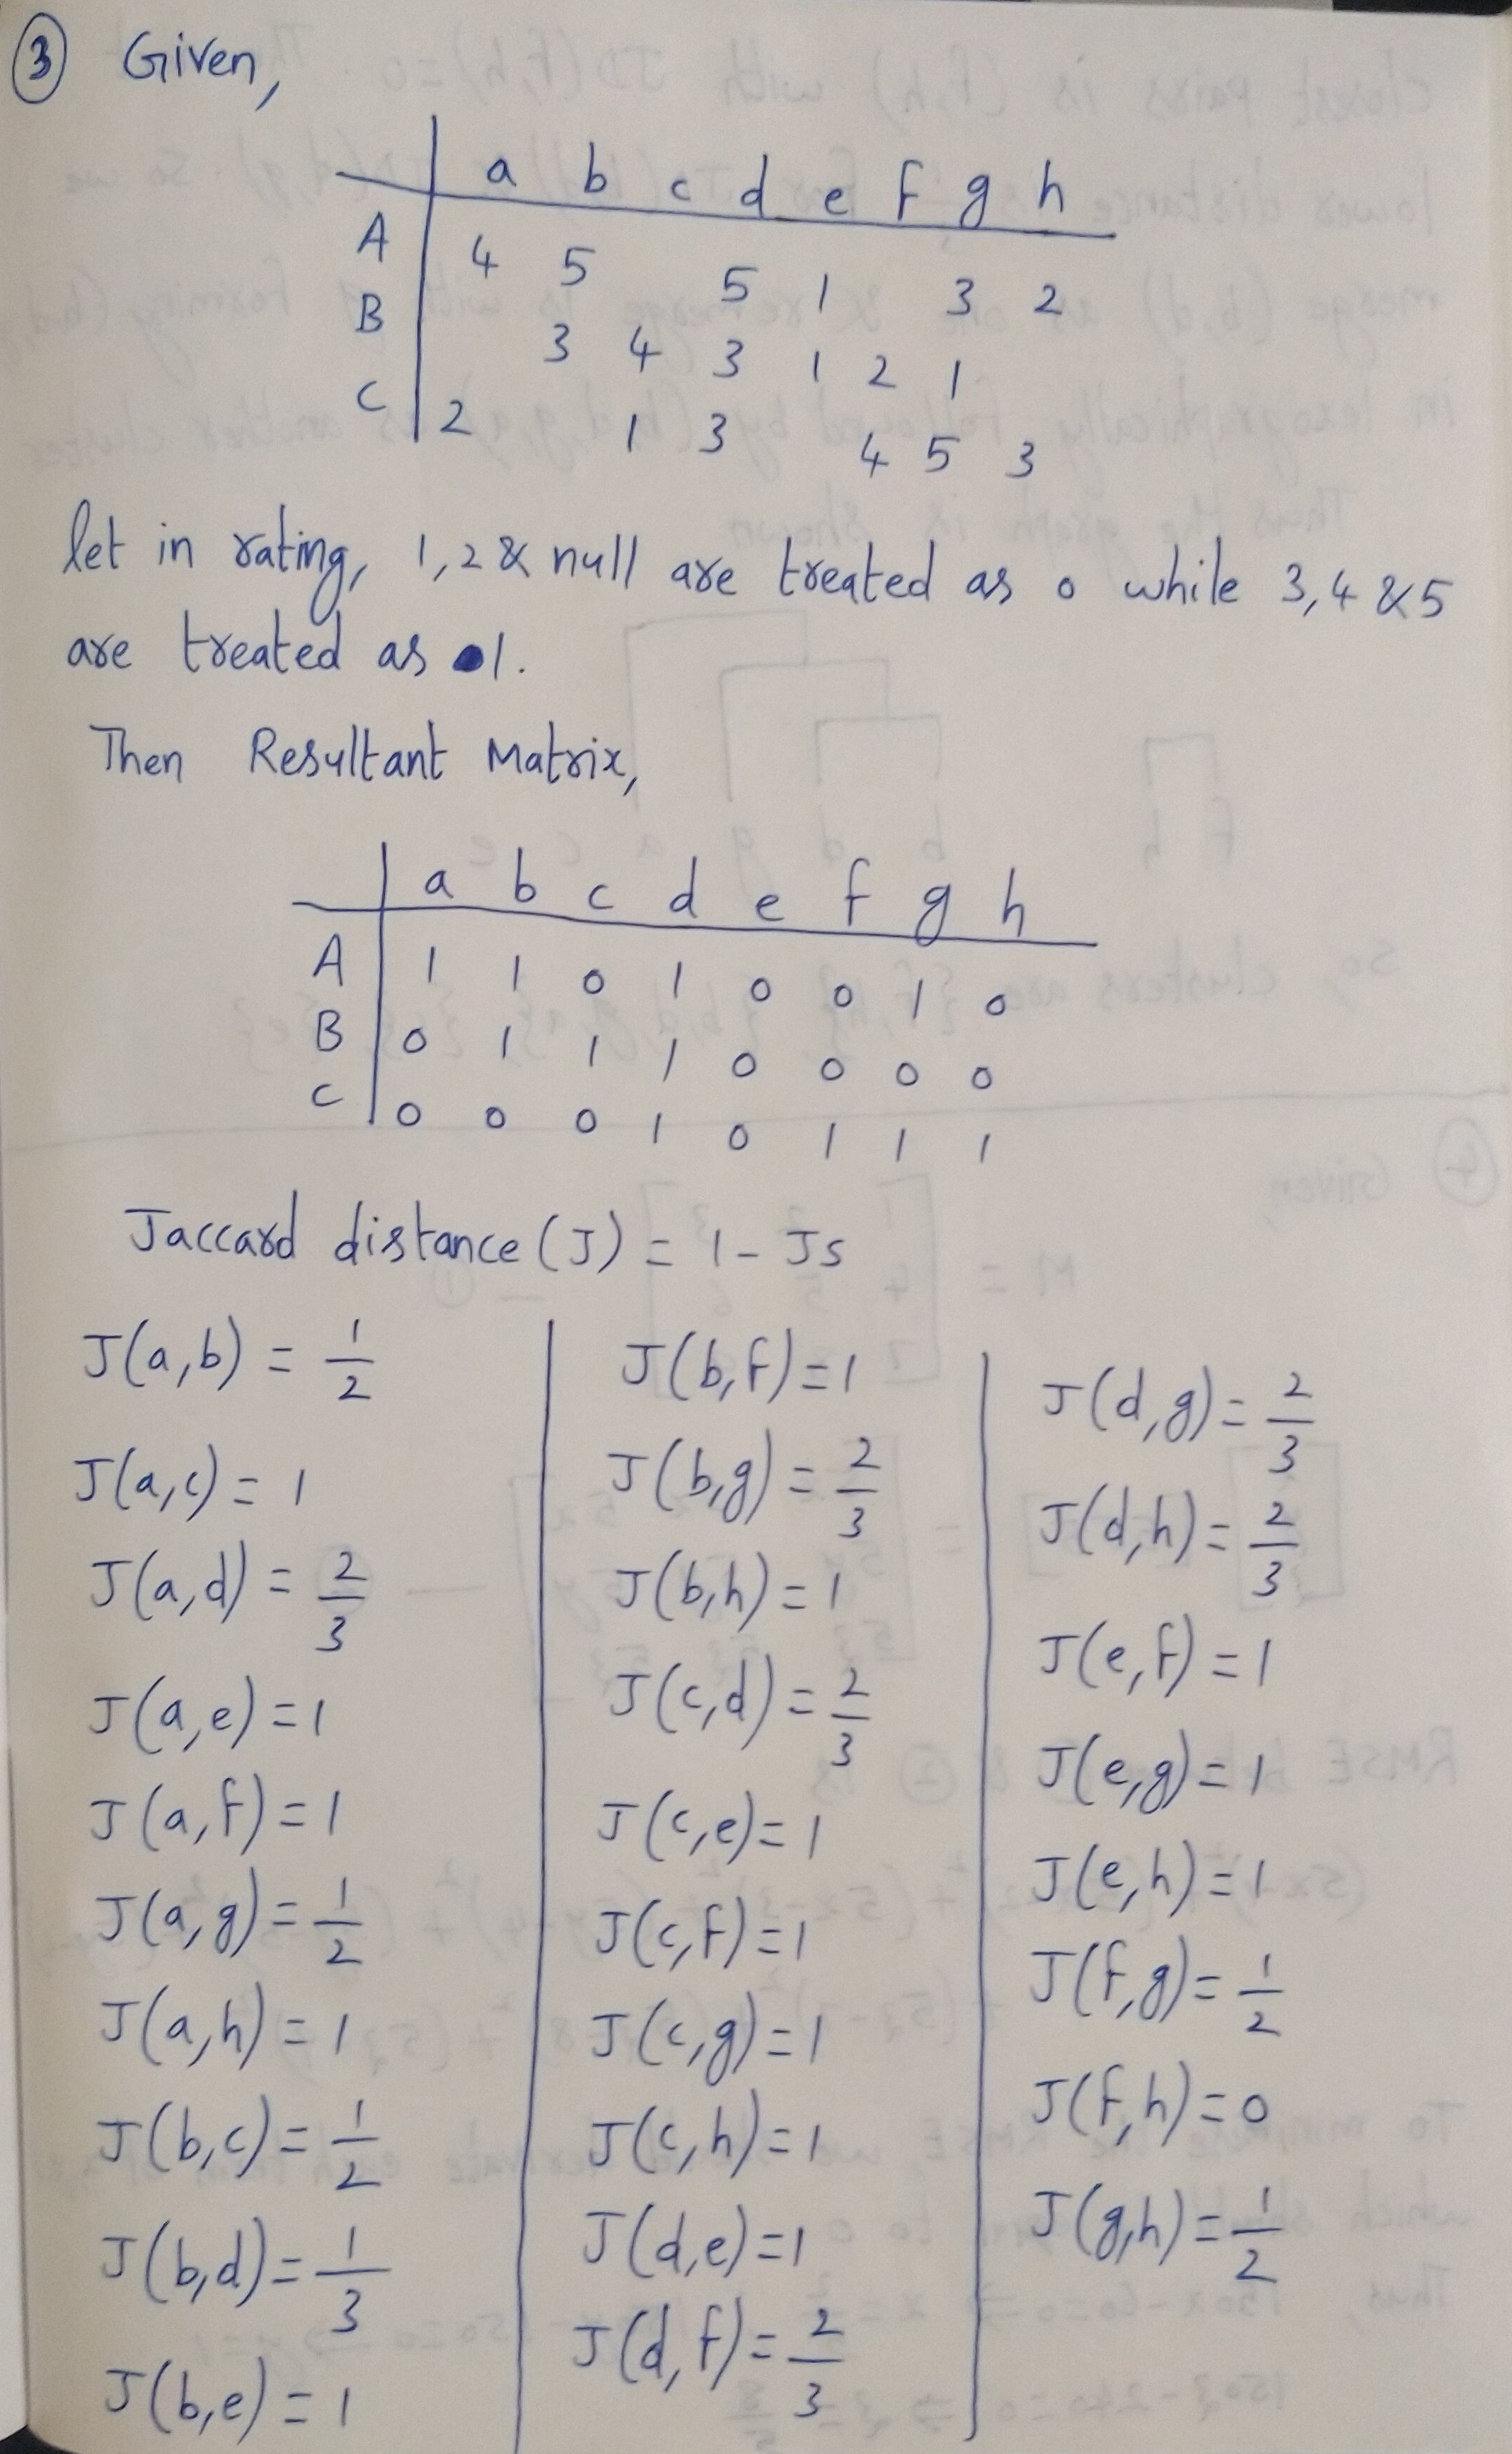 3 Given,
a b c d e f g h
A 4 5 5 1 3 2
B 3 4 3 1 2 1
C 2 1 3 4 5 3
let in rating, 1,2 & null are treated as 0 while 3,4 &5
are treated as 1.
Then Resultant Matrix,
a b c d e f g h
A 1 1 0 1 0 0 1 0
B 0 1 1 1 0 0 0 0
C 0 0 0 1 0 1 1 1
Jaccard distance (J) = 1 - Js
J(a,b) = 1/2
J(a,c) = 1
J(a,d) = 2/3
J(a,e) = 1
J(a,f) = 1
J(a,g) = 1/2
J(a,h) = 1
J(b,c) = 1/2
J(b,d) = 1/3
J(b,e) = 1
J(b,f) = 1
J(b,g) = 2/3
J(b,h) = 1
J(c,d) = 2/3
J(c,e) = 1
J(c,f) = 1
J(c,g) = 1
J(c,h) = 1
J(d,e) = 1
J(d,f) = 2/3
J(d,g) = 2/3
J(d,h) = 2/3
J(e,f) = 1
J(e,g) = 1
J(e,h) = 1
J(f,g) = 1/2
J(f,h) = 0
J(g,h) = 1/2